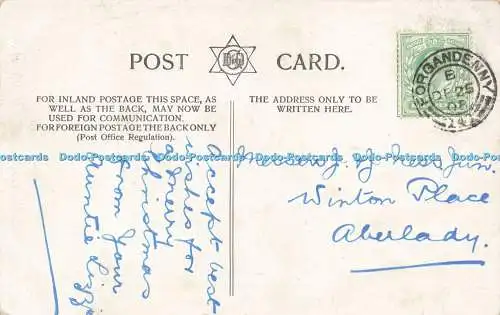 POST CARD.
FOR INLAND POSTAGE THIS SPACE, AS
WELL AS THE BACK, MAY NOW BE
USED FOR COMMUNICATION.
FOR FOREIGN POSTAGE THE BACK ONLY
(Post Office Regulation).
THE ADDRESS ONLY TO BE
WRITTEN HERE.
FORGANDENNY
B
DE 25
05
Accept best
wishes for
a merry
Christmas
from your
Auntie Lizzie
Winton Place
Aberlady.
Postcards Do-Postcards Do-Postcards Do-Postcards Do-Postcards Do-Postcards